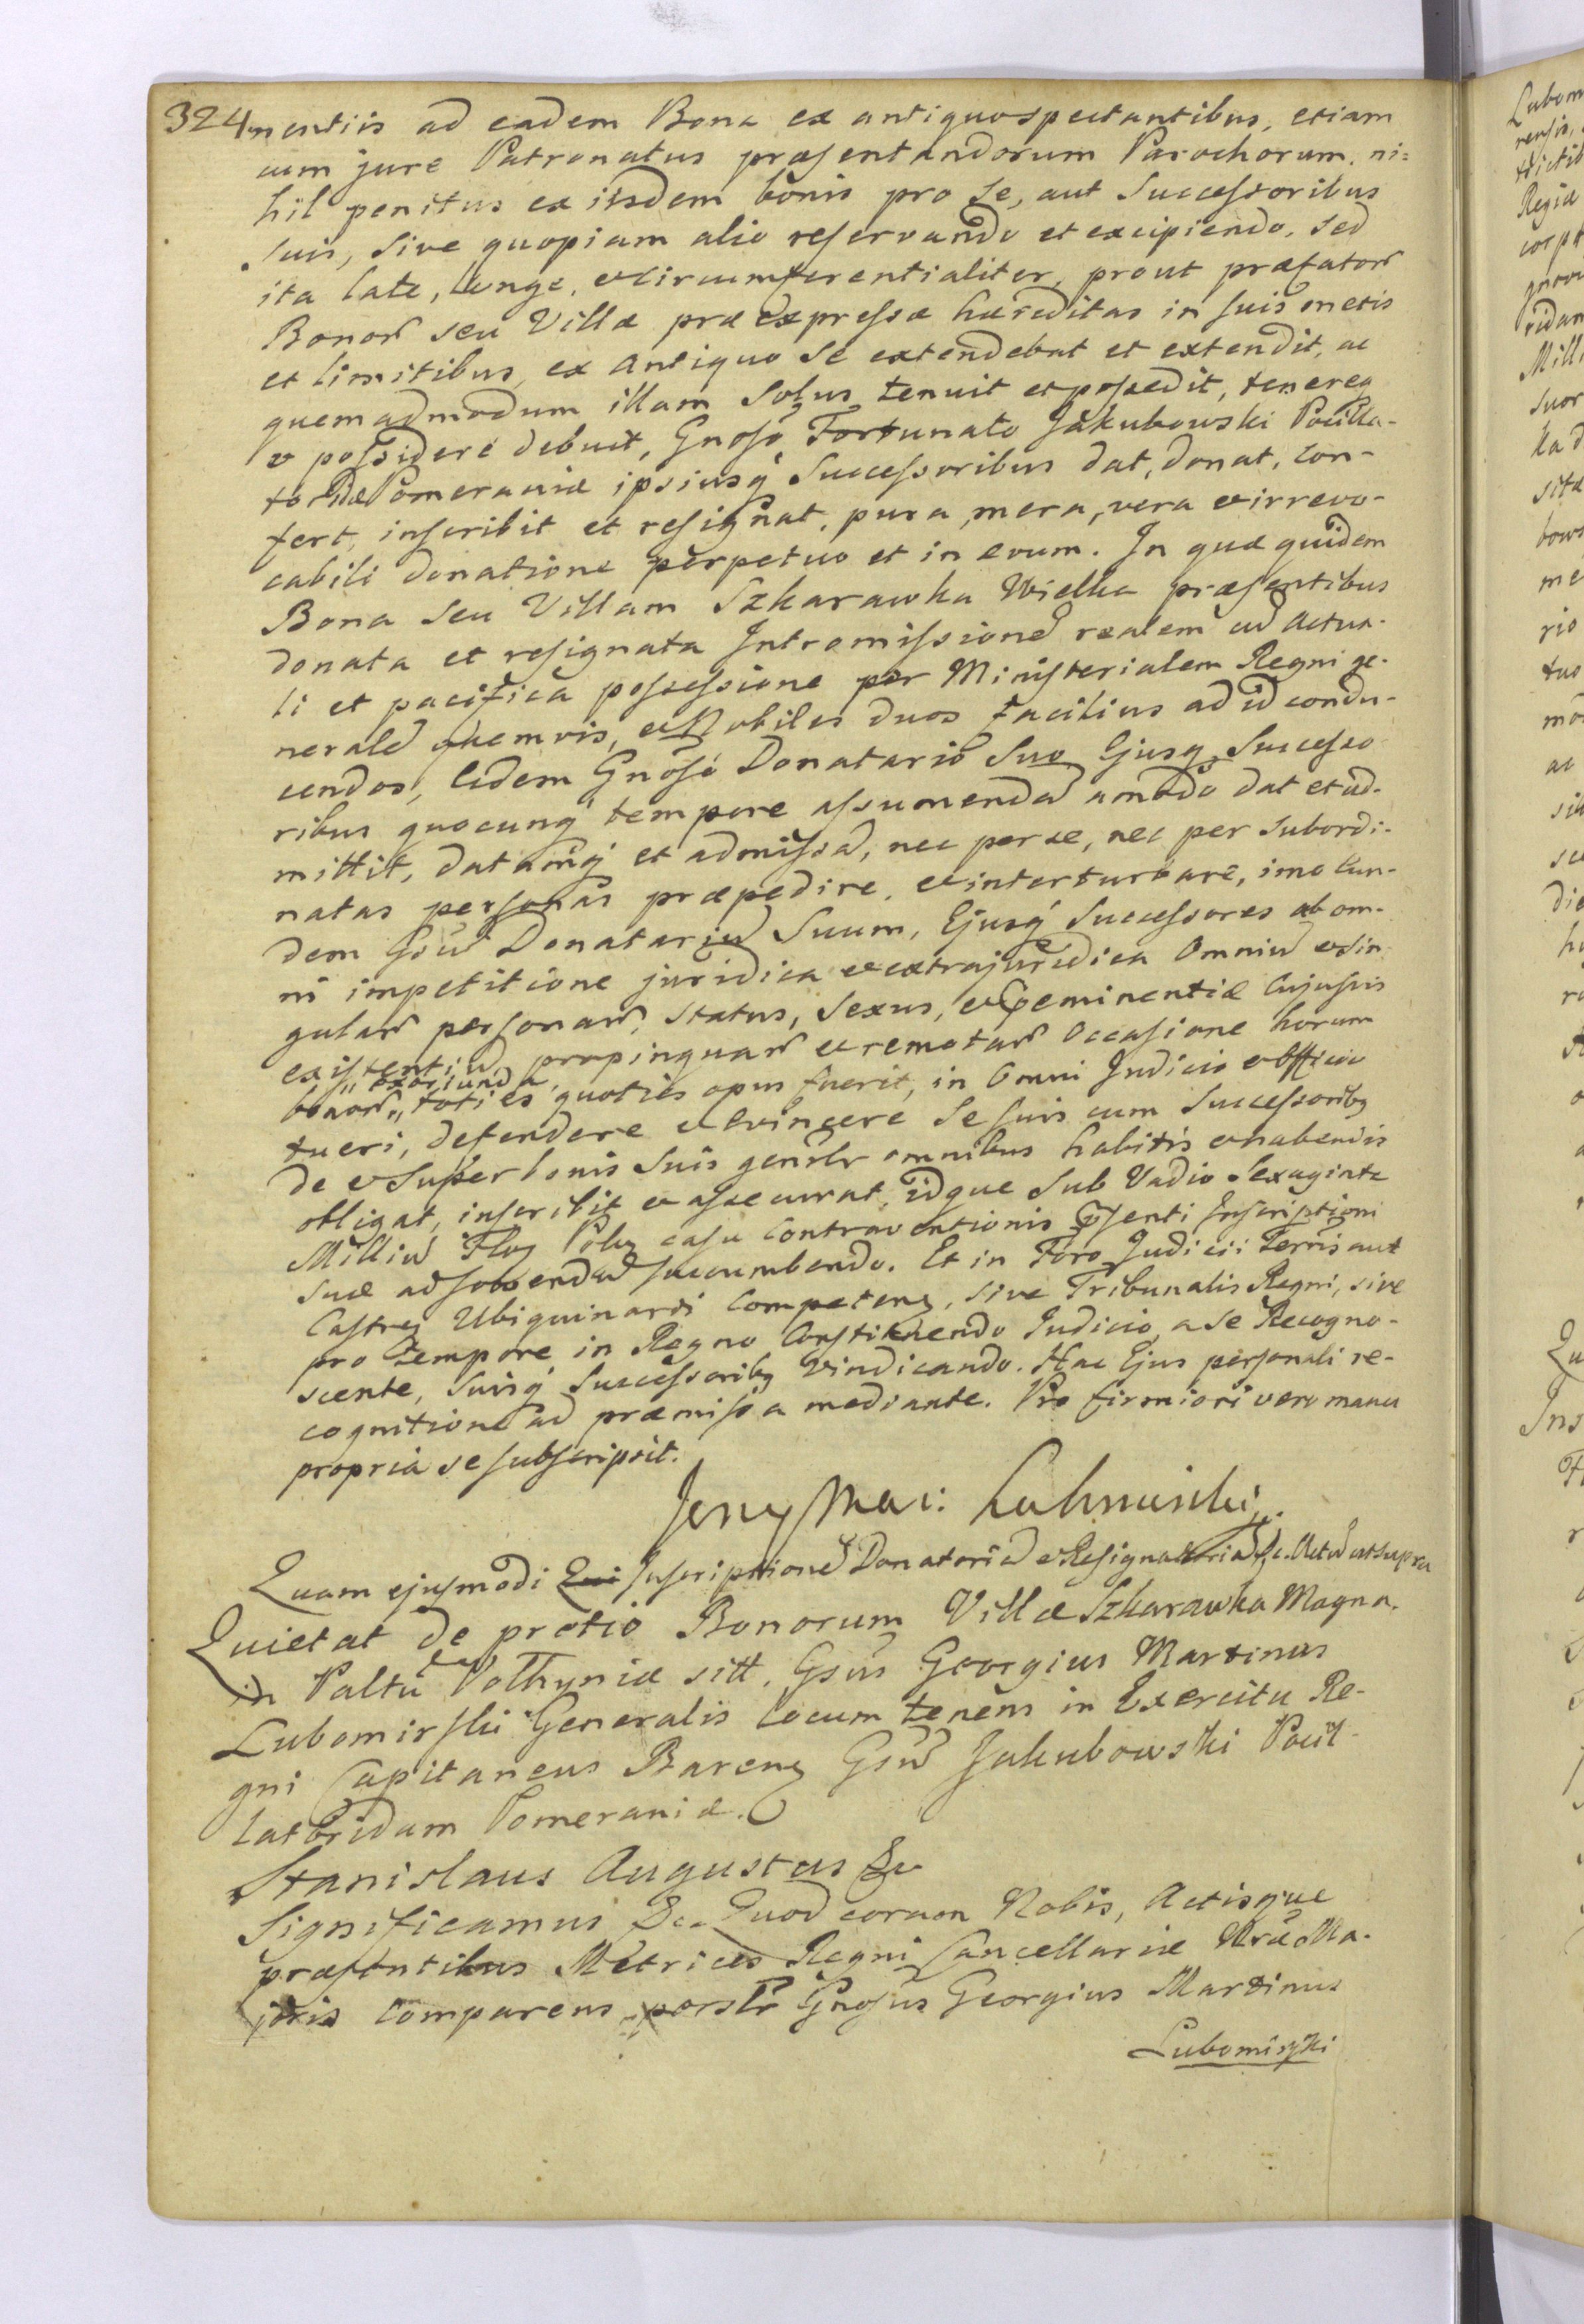 324
mentiis ad eadem Bona ex antiquo spectantibus, etiam
cum jure Patronatus præsentandorum Parochorum. ni=
hil penitus ex iisdem bonis pro se, aut Successoribus
suis, sive quopiam alio reservando et excipiendo. sed
ita late, longe, et circumferentialiter, prout præfator̃
Bonor̃ seu Villæ præexpressæ hæreditas in suis metis
et limitibus, ex antiquo se extendebat et extendit, ac
quemadmodum illam Solus tenuit et possedit, tenereq
et possidere debuit, Gnoso Fortunato Jakubowski Pocilla-
tor Pomeraniæ ipsiusq Successoribus dat, donat, con-
fert, inscribit et resignat, pura, mera, vera et irrevo-
cabili donatione perpetuo et in ævum. In quæ quidem
Bona Seu Villam Szkarawka Wielka præsentibus
donata et resignata Intromissionẽ realem cũ actua-
li et pacifica possessione per Ministerialem Regni ge-
neralẽ quemvis, et Nobiles duos facilius ad id condu-
cendos, Eidem Gnoso Donatario Suo Ejusq Successo
ribus quocunq tempore assumendã amodo dat et ad-
mittit, datamq et admissã, nec per se, nec per subordi-
natas personas præpedire, et interturbare, imo Eun-
dem Gsũ Donatariũ Suum, Ejusq Successores ab om-
ni impetitione juridica et extrajuridica Omniũ et sin
gular̃ personar̃, status, sexus, et Præeminentiæ cujusvis
existentiũ propinquar̃ et remotar̃ Occasione horum
exoriunda
bonor̃ toties quoties opus fuerit, in Omni Judicio et Officio
tueri, defendere et Evincere Se suis cum Successoribq
de et Super bonis Suis genrlr omnibus habitis et habendis
obligat, inscribit et assecurat, idque Sub Vadio Sexaginta
Milliũ Floq Polq casu contraventionis pñsenti Inscriptioni
suæ adsolvendũ succumbendo. Et in Foro Judicii Terris aut
Castreq Ubiquinarii Competenq, sive Tribunalis Regni, sive
pro tempore in Regno Constituendo Judicio, a se Recogno-
scente, Suisq Successoribq Vindicando. Hac Ejus personali re-
cognitione ad præmissa mediante. Pro firmiori vero manu
propria se subscripsit.
Jerzy Mar: Lubomirski
Quam ejusmodi Inscriptionẽ Donatoriã et Resignatoriã &c. Actũ ut supra
Quietat de pretio Bonorum Villæ Szkarawka Magna
in Paltu Volhyniæ sitt. Gsus Georgius Martinus
Lubomirski Generalis Locum tenens in Exercitu Re-
gni Capitaneus Barenq Gsũ Jakubowski Pocil-
latoridam Pomeraniæ.
Stanislaus Augustus &c
Significamus &c. Quod coram Nobis, Actisque
præsentibus Metrices Regni Cancellariæ Nræ Ma-
joris Comparens perslr Gnosus Georgius Martinus
Lubomirski